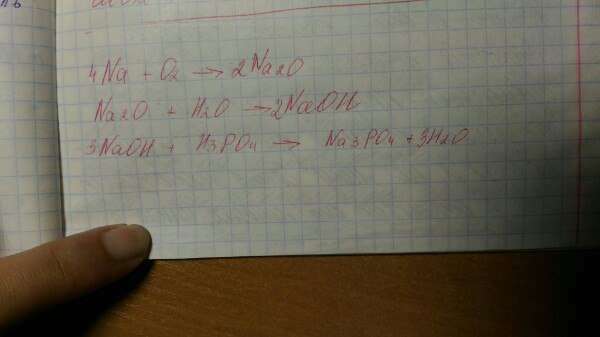 4Na + O2 → 2Na2O
Na2O + H2O → 2NaOH
3NaOH + H3PO4 → Na3PO4 + 3H2O